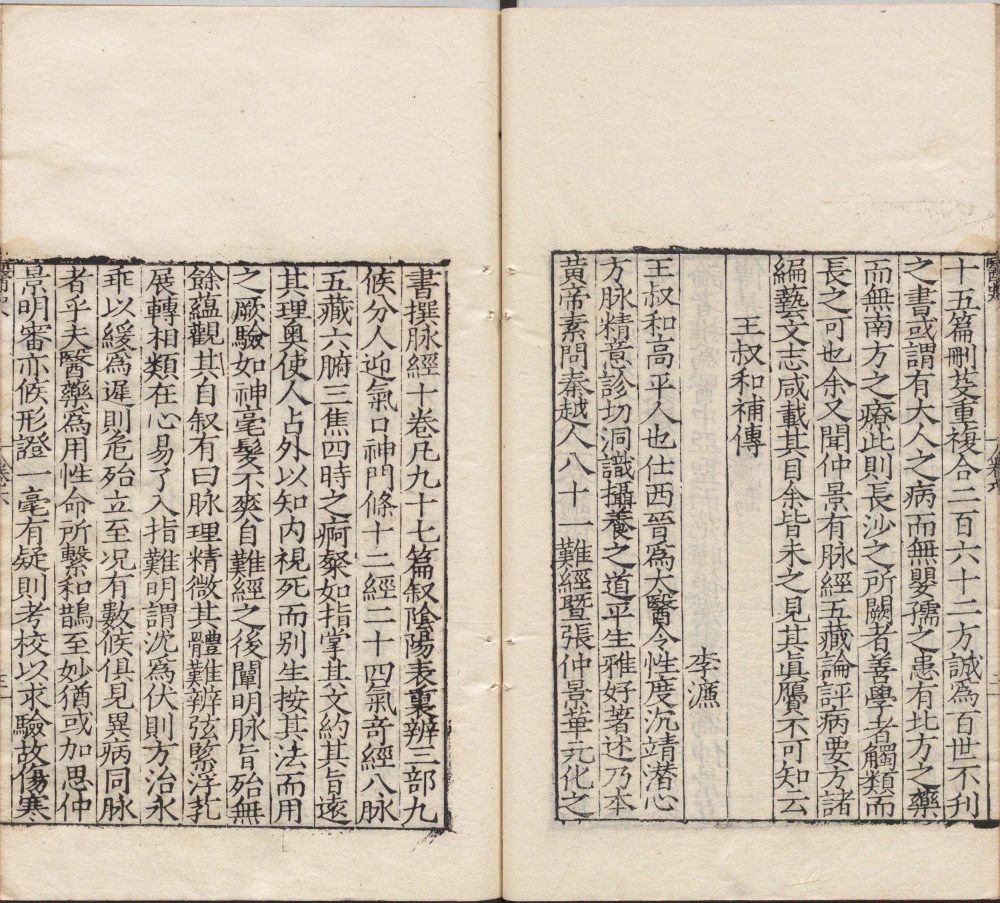 十五篇刪芟重複合二百六十二方誠為百世不刊
之書或謂有大人之病而無嬰孺之患有北方之藥
而無南方之療此則長沙之所闕者善學者觸類而
長之可也余又聞仲景有脉經五藏論評病要方諸
編藝文志咸載其目余皆未之見其真贋不可知云
王叔和補傳
李濂
王叔和高平人也仕西晉為太醫令性度沉靖潜心
方脉精意診切洞識攝養之道平生雅好著述乃本
黃帝素問秦越人八十一難經暨張仲景華元化之
書撰脉經十卷凡九十七篇叙陰陽表裏辨三部九
候分人迎氣口神門條十二經二十四氣竒經八脉
五藏六腑三焦四時之痾粲如指掌其文約其旨逺
其理奥使人占外以知内視死而别生按其法而用
之厥驗如神毫髮不爽自難經之後闡明脉旨殆無
餘蘊觀其自叙有曰脉理精微其體難辨弦緊浮芤
展轉相類在心易了入指難明謂沉為伏則方治永
乖以緩為遲則危殆立至况有數候俱見異病同脉
者乎夫醫藥為用性命所繫和鵲至妙猶或加思仲
景明審亦候形證一毫有疑則考校以求驗故傷寒